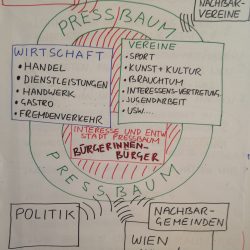 NACHBAR-
VEREINE
PRESSBAUM
WIRTSCHAFT
• HANDEL
• DIENSTLEISTUNGEN
• HANDWERK
• GASTRO
• FREMDENVERKEHR
VEREINE
• SPORT
• KUNST + KULTUR
• BRAUCHTUM
• INTERESSENS-VERTRETUNG
• JUGENDARBEIT
• USW....
INTERESSE UND ENTW
STADT PRESSBAUM
BÜRGERINNEN-
BÜRGER
PRESSBAUM
POLITIK
NACHBAR-
GEMEINDEN
WIEN